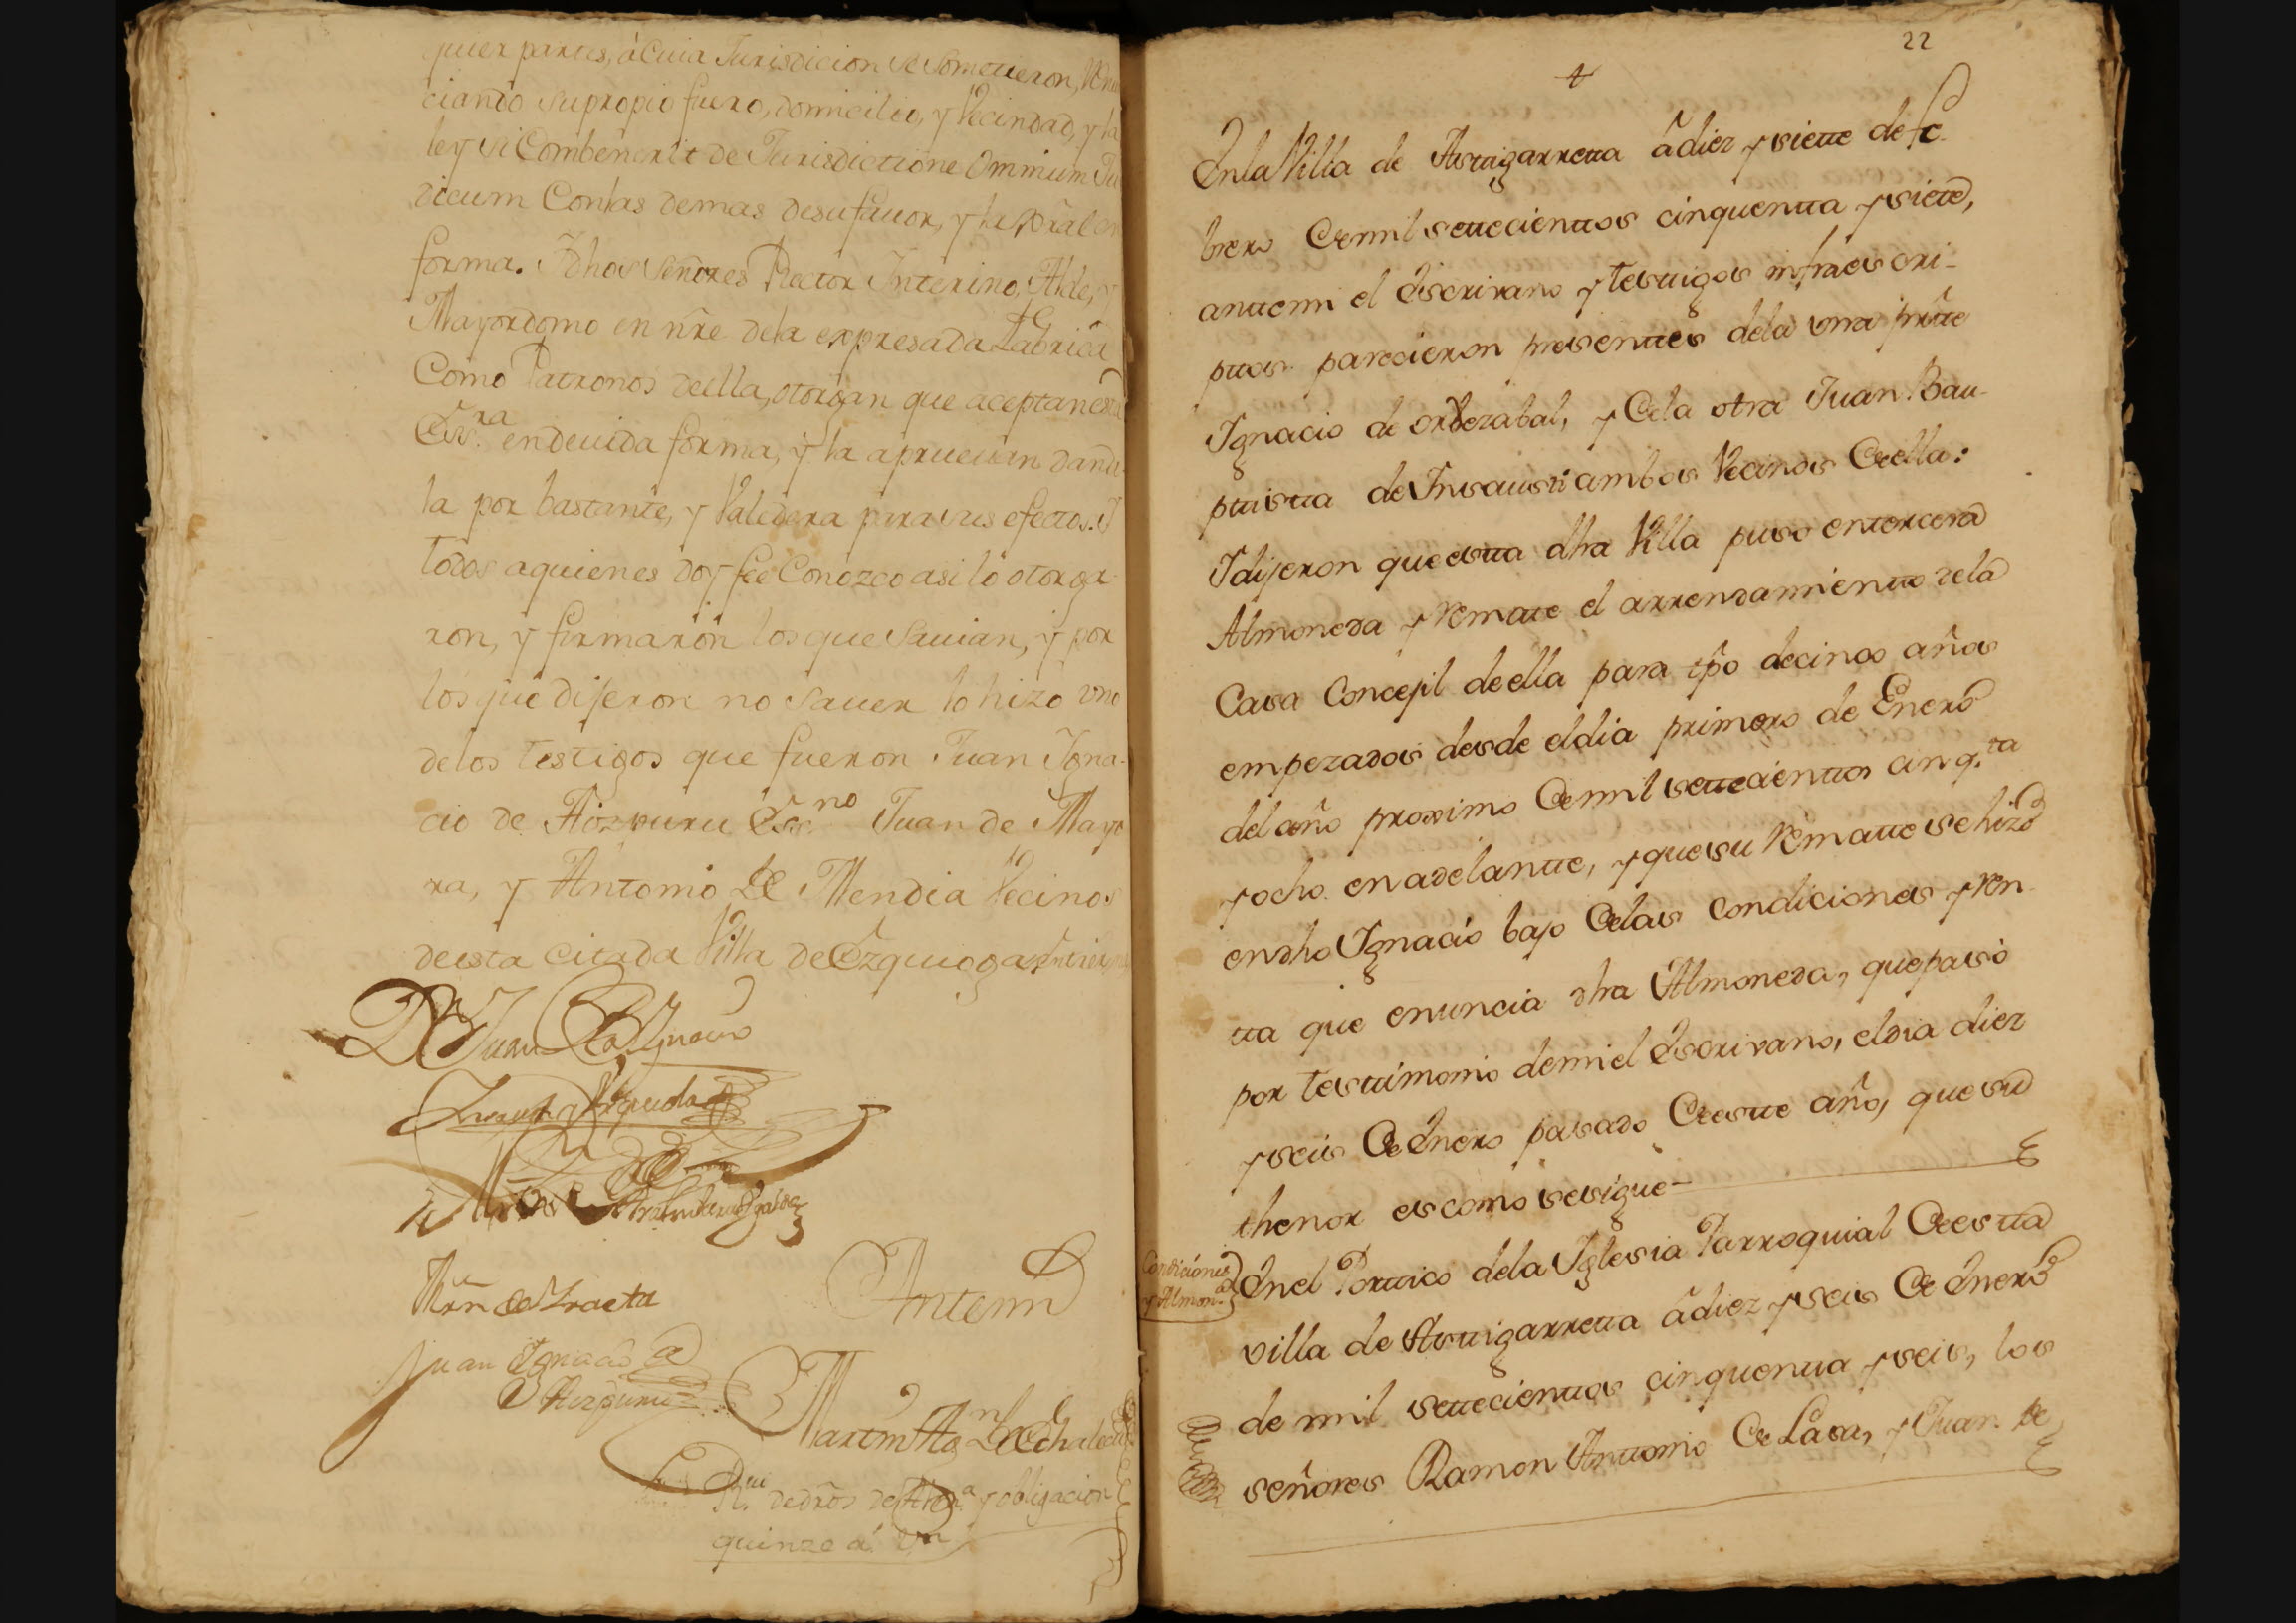 quier partes, à Cuia Jurisdicion se Sometieron, Renun
ciando su propio fuero, domicilio, y Vecindad, y la
ley si Combenerit de Jurisdictione Omnium Ju
dicum Con las demas de su fauor, y la gñral en
forma. Y dhos Señores Rector Interino, Alde, y
Mayordomo en nr̃e de la expresada Fabrica
Como Patronos de ella, otorgan que aceptan esta
Esc.ra en deuida forma, y la aprueuan dando
la por bastante, y Valedera para sus efectos. Y
todos a quienes doy feè Conozco asi lo otorga
ron, y firmaron los que Sauian, y por
los que dijeron no Sauer lo hizo vno
de los testigos que fueron Juan Igna-
cio de Aizpuru Ess.no Juan de Mayo
ra, y Antonio de Mendia Vecinos
de esta citada Villa de Ezquioga
Mrn de Iraeta
Antemi
Juan Ignacio de
Aizpuru
Martin Ag.n de Echalecu
R.ui de dr̃os de y obligacion
quinze à Vn
22
En la Villa de Astigarreta à diez y siette de fe-
brero de mil settecienttos cinquentta y siete,
anttemi el Escrivano y testtigos infraescri-
pttos parecieron presenttes de la vna pr̃tte
Ignacio de Orbezabal, y de la otra Juan Bau-
pttistta de Insausti ambos Vecinos de ella:
Y dijeron que estta dha Villa puso en tercera
Almoneda y Rematte el arrendamientto de la
Casa Concejil de ella para tp̃o de cinco años
empezados desde el dia primero de Enero
del año proximo de mil settecienttos cinq.ta
y ocho en adelantte, y que su Rematte se hizo
en dho Ignacio bajo de las condiciones y Ren-
tta que enuncia dha Almoneda, que pasò
por testtimonio de mi el Escrivano, el dia diez
y seis de Enero pasado de estte año, que su
thenor es como se sigue
Condiciones
y Almon.da
En el Porttico de la Iglesia Parroquial de estta
villa de Asttigarretta à diez y seis de Enero
de mil settecienttos cinquentta y seis, los
señores Ramon Anttonio de Lasa, y Juan de